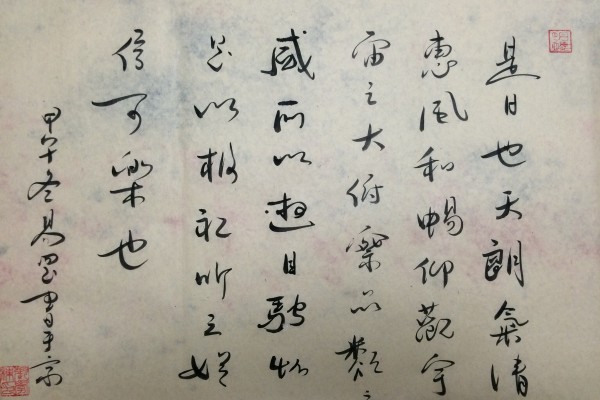 是日也天朗氣清
惠風和暢仰觀宇
宙之大俯察品類之
盛所以遊目騁懷
足以極視聽之娛
信可樂也
甲午冬易書于